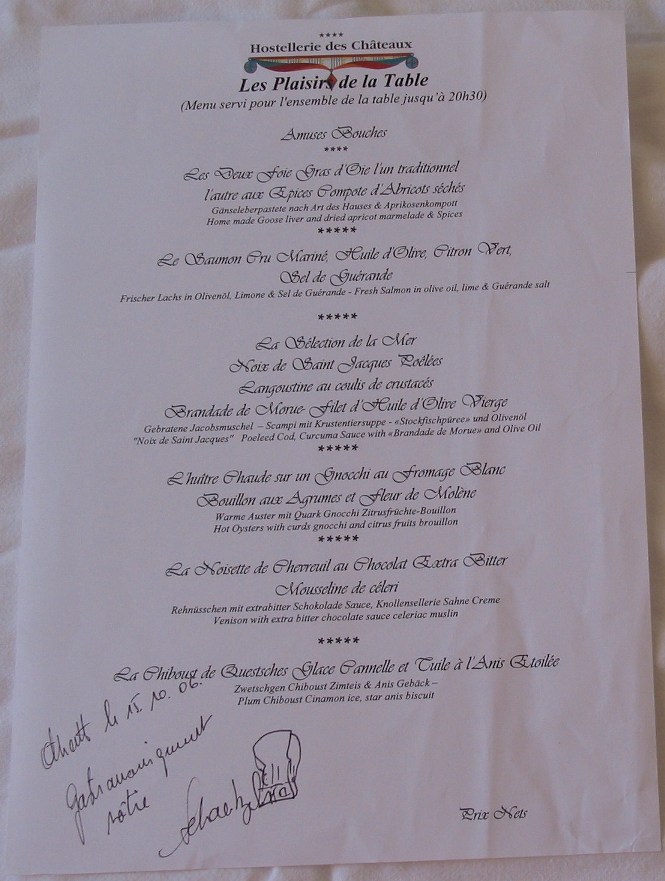 ****
Hostellerie des Châteaux
Les Plaisirs de la Table
(Menu servi pour l'ensemble de la table jusqu'à 20h30)
Amuses Bouches
****
Les Deux Foie Gras d'Oie l'un traditionnel
l'autre aux Epices Compote d'Abricots séchés
Gänseleberpastete nach Art des Hauses & Aprikosenkompott
Home made Goose liver and dried apricot marmelade & Spices
*****
Le Saumon Cru Mariné, Huile d'Olive, Citron Vert,
Sel de Guérande
Frischer Lachs in Olivenöl, Limone & Sel de Guérande - Fresh Salmon in olive oil, lime & Guérande salt
*****
La Sélection de la Mer
Noix de Saint Jacques Poêlées
Langoustine au coulis de crustacés
Brandade de Morue- Filet d'Huile d'Olive Vierge
Gebratene Jacobsmuschel – Scampi mit Krustentiersuppe - «Stockfischpüree» und Olivenöl
"Noix de Saint Jacques" Poeleed Cod, Curcuma Sauce with «Brandade de Morue» and Olive Oil
*****
L'huître Chaude sur un Gnocchi au Fromage Blanc
Bouillon aux Agrumes et Fleur de Molène
Warme Auster mit Quark Gnocchi Zitrusfrüchte-Bouillon
Hot Oysters with curds gnocchi and citrus fruits brouillon
*****
La Noisette de Chevreuil au Chocolat Extra Bitter
Mousseline de céleri
Rehnüsschen mit extrabitter Schokolade Sauce, Knollensellerie Sahne Creme
Venison with extra bitter chocolate sauce celeriac muslin
*****
La Chiboust de Questsches Glace Cannelle et Tuile à l'Anis Etoilée
Zwetschgen Chiboust Zimteis & Anis Gebäck –
Plum Chiboust Cinamon ice, star anis biscuit
le 15.10.06.
Gastronomiquement
vôtre
Prix Nets